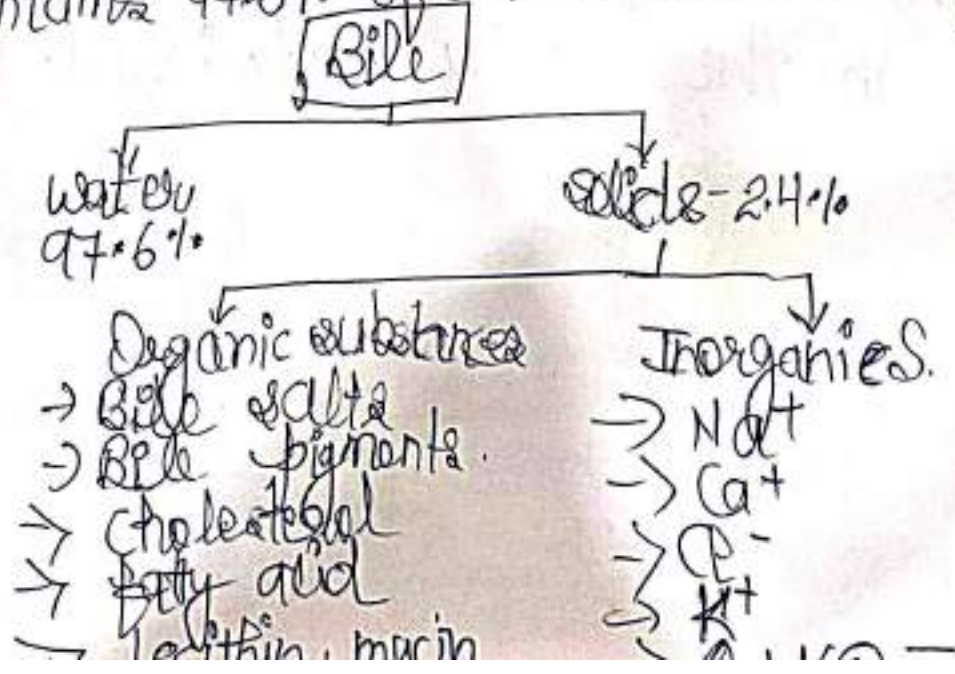 97.6%
Bile
water
97.6%
solids - 2.4%
Organic substances
→ Bile salts
→ Bile pigments.
→ cholesterol
→ fatty acid
→ lecithin, mucin
Inorganics.
→ Na+
→ Ca+
→ Cl-
→ K+